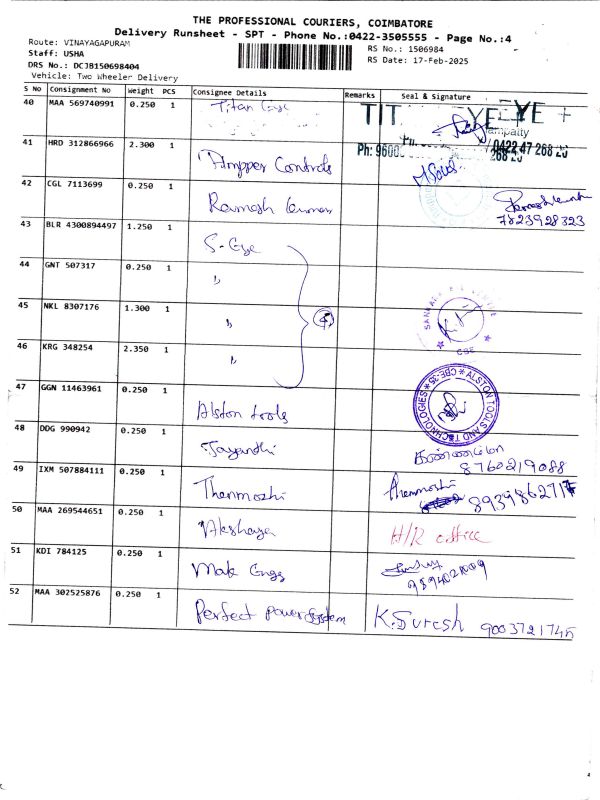 THE PROFESSIONAL COURIERS, COIMBATORE
Delivery Runsheet - SPT - Phone No.:0422-3505555 - Page No.:4
Route: VINAYAGAPURAM
RS No.: 1506984
Staff: USHA
RS Date: 17-Feb-2025
DRS No.: DCJB150698404
Vehicle: Two Wheeler Delivery
S No Consignment No Weight PCS Consignee Details Remarks Seal & Signature
40 MAA 569740991 0.250 1 Titan Eye TIT EYE EYE +
41 HRD 312866966 2.300 1 Ampper Controls Ph: 0422 47 268 M Soul
42 CGL 7113699 0.250 1 Ramesh Kumar 7823928323
43 BLR 4300894497 1.250 1 S-Eye
44 GNT 507317 0.250 1 "
45 NKL 8307176 1.300 1 " 4 CBE
46 KRG 348254 2.350 1 "
47 GGN 11463961 0.250 1 Alston tools ALSTON TOOLS AND TECHNOLOGIES * CBE-35 *
48 DDG 990942 0.250 1 Jayanthi 8760219088
49 IXM 507884111 0.250 1 Thenmozhi Thenmozhi
50 MAA 269544651 0.250 1 Akshaya H/R office
51 KDI 784125 0.250 1 Mak Engg 9894021009
52 MAA 302525876 0.250 1 Perfect power system K. Suresh 9003721745